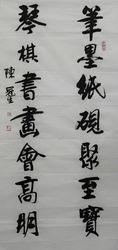 筆墨紙硯聚至寶
琴棋書畫會高明